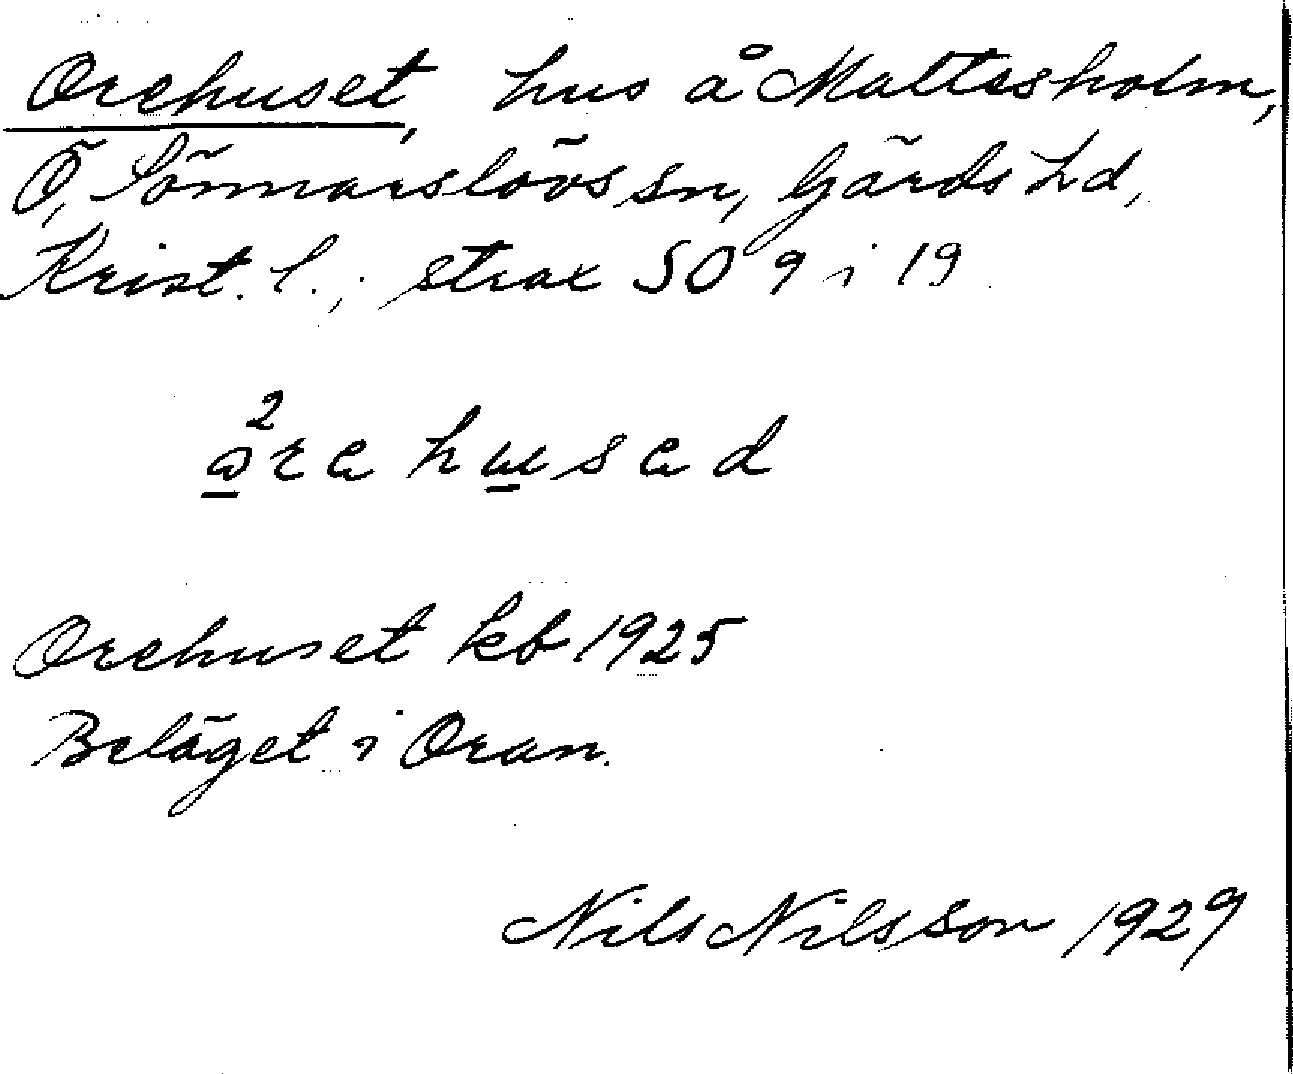 Orehuset, hus å Mattesholm,
Ö. Sönnarslövs sn, Gärds hd,
Krist. l.; strax SO 9 i 19
Orehuset kb 1925
Beläget i Oran.
Nils Nilsson 1929